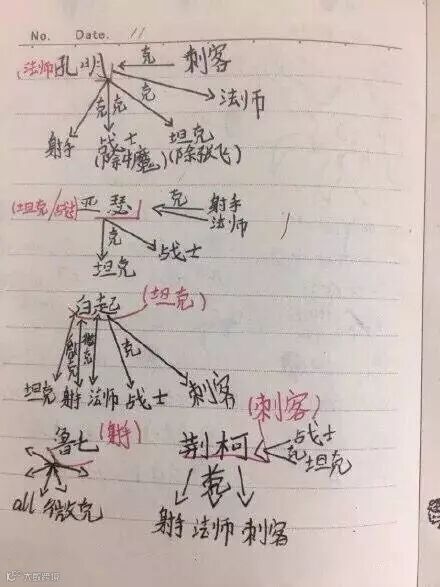 No. Date. 11
法师 孔明 克 刺客
克 克 克 法师
射手 战士 坦克
(除牛魔) (除张飞)
(坦克/战士) 亚瑟 克 射手
法师
克 战士
坦克
白起 (坦克)
微克 微克 克
坦克 射手 法师 战士 刺客
鲁七 (射手) 荆柯 (刺客) 战士
克 坦克
all 微克 克
射手 法师 刺客
大数跨境